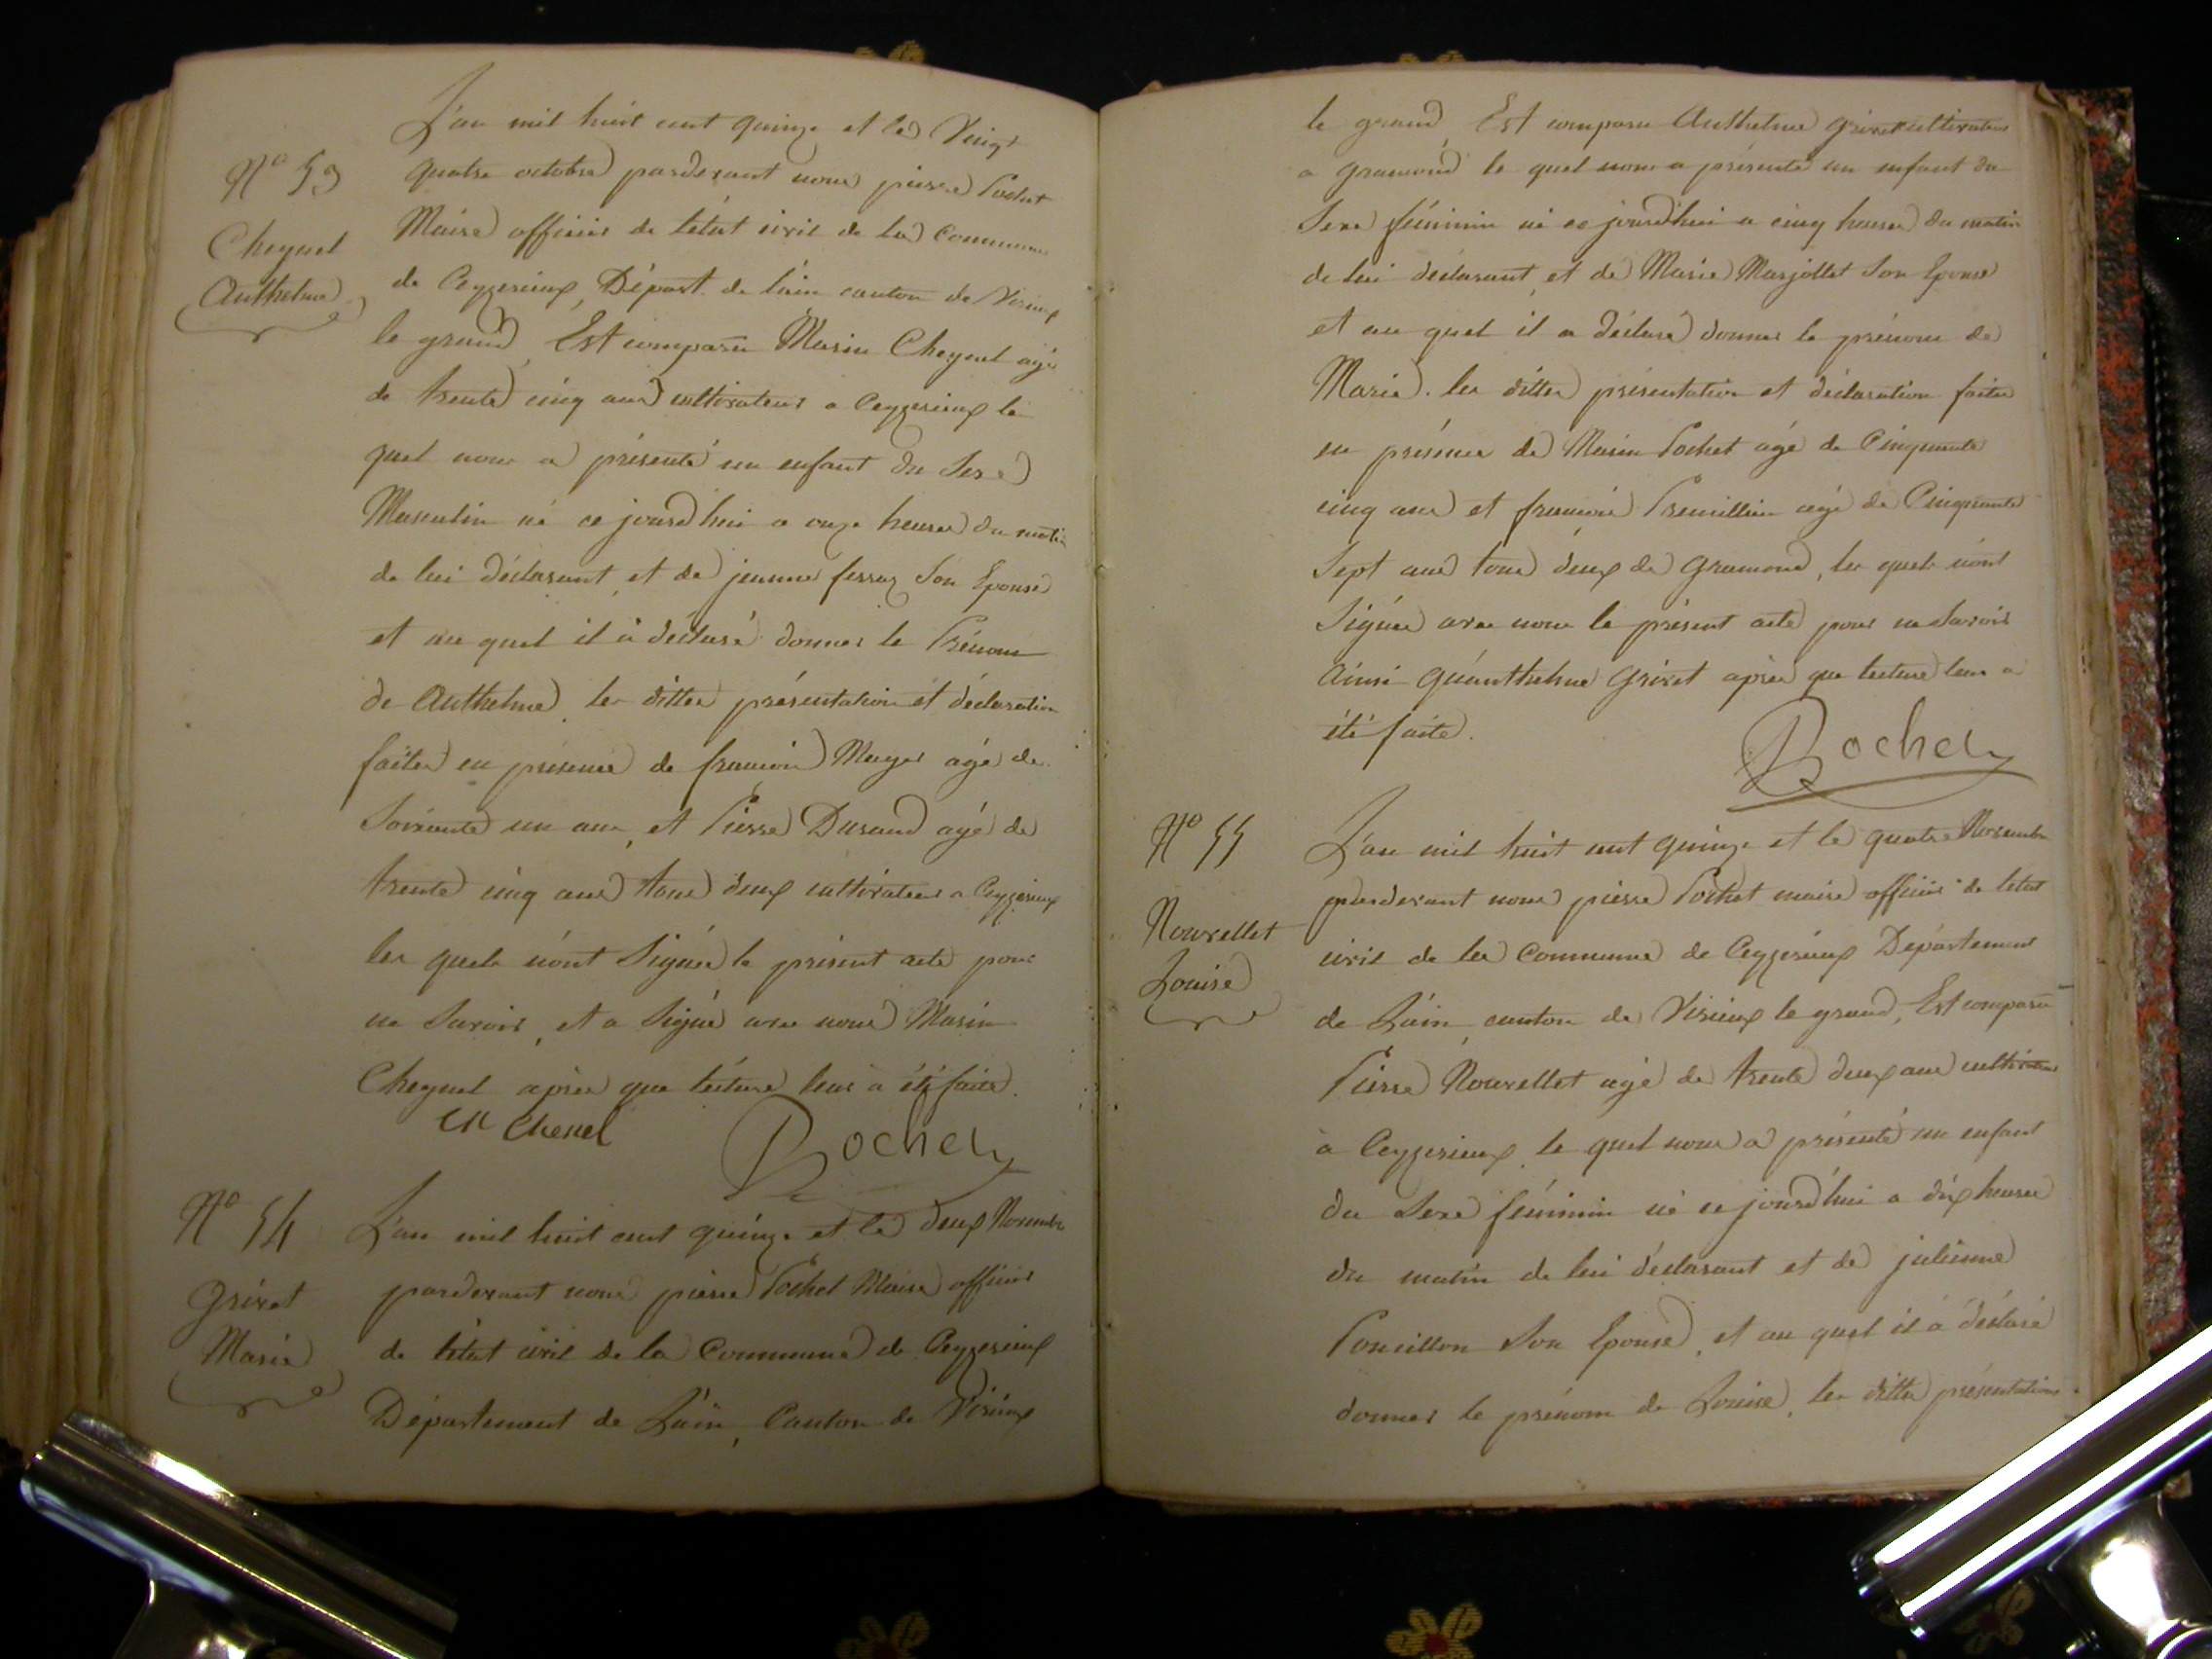 L'an mil huit cent quinze et le Vingt
N° 53
quatre octobre pardevant nous pierre Pochet
Cheynel
Anthelme
Maire officier de létat civil de la Commune
de Ceyzerieux, Départ. de l'ain canton de Virieux
le grand, Est comparu Marin Cheynel agé
de trente cinq ans cultivateur a Ceyzerieux le
quel nous a présenté un enfant du Sexe
Masculin né ce jourdhui a onze heures du matin
de lui déclarant, et de jeanne ferraz Son Epouse
et au quel il à déclaré donner le Prénom
de Anthelme, les dittes présentation et déclaration
faites en présence de francois Meyer agé de
Soixante un ans, et Pierre Durand agé de
trente cinq ans tous deux cultivateurs a Ceyzerieux
les quels n'ont Signés le présent acte pour
ne Savoir, et a Signé avec nous Marin
Cheynel après que lecture leur à été faite.
M Chenel
Pochet
N° 54
Grivet
Marie
L'an mil huit cent quinze et le deux Novembre
pardevant nous pierre Pochet Maire officier
de létat civil de la Commune de Ceyzerieux
Département de L'ain, Canton de Virieux
le grand Est comparu Anthelme grivet cultivateur
a gramond le quel nous a présenté un enfant du
Sexe féminin né ce jourdhui a cinq heures du matin
de lui déclarant, et de Marie Marjollet Son Epouse
et au quel il a déclaré donner le prénom de
Marie. les dittes présentation et déclaration faites
en présence de Marin Pochet agé de Cinquante
cinq ans et francois Premillieu agé de Cinquante
Sept ans tous deux de gramond, les quels n'ont
Signés avec nous le présent acte pour ne Savoir
ainsi qu'anthelme grivet après que lecture leur a
été faite.
Pochet
N° 55
Nouvellet
Louise
L'an mil huit cent quinze et le quatre Novembre
pardevant nous pierre Pochet maire officier de létat
civil de la Commune de Ceyzerieux Département
de L'ain, canton de Virieux le grand, Est comparu
Pierre Nouvellet agé de trente deux ans cultivateur
à Ceyzerieux, le quel nous a présenté un enfant
du Sexe féminin né ce jourdhui a dix heures
du matin de lui déclarant et de julienne
Poncillon Son Epouse, et au quel il à déclaré
donner le prénom de Louise, les dittes présentation